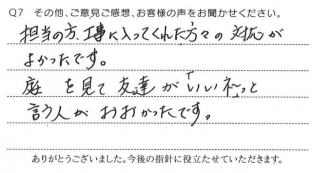 Q7 その他、ご意見ご感想、お客様の声をお聞かせください。
担当の方、工事に入ってくれた方々の対応が
よかったです。
庭を見て友達が「いいネ」っと
言う人がおおかったです。
ありがとうございました。今後の指針に役立たせていただきます。